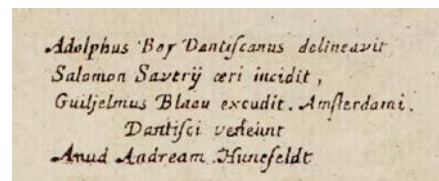 Adolphus Boy Dantiſcanus delineavit
Salomon Savrij æri incidit,
Guiljelmus Blaeu excudit. Amſterdami.
Dantiſci veneunt
Apud Andream Hunefeldt